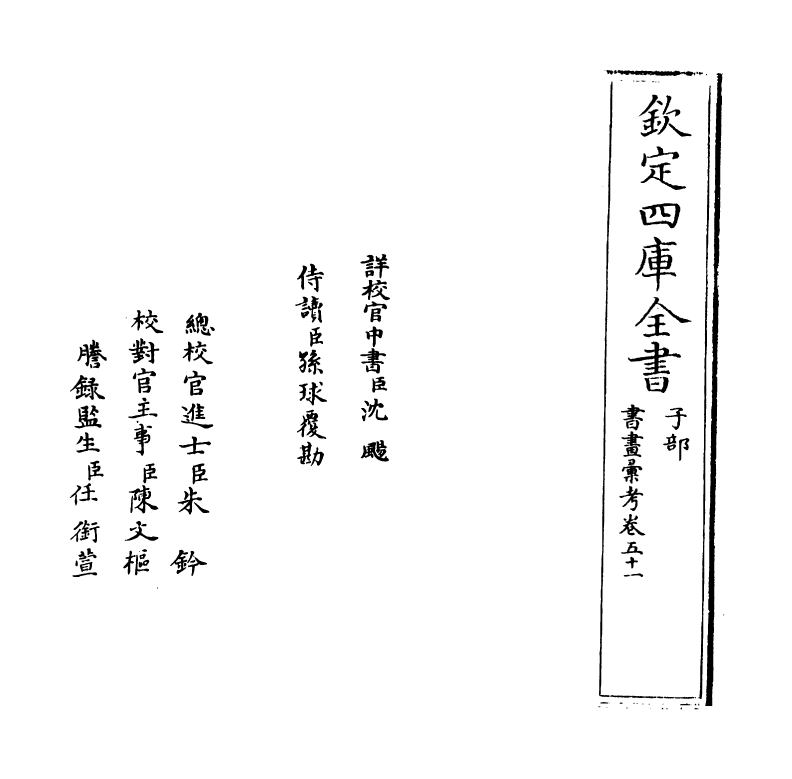 欽定四庫全書
子部
書畫彙考卷五十一
詳校官中書臣沈颺
侍讀臣孫球覆勘
總校官進士臣朱鈐
校對官主事臣陳文樞
謄録監生臣任銜萱